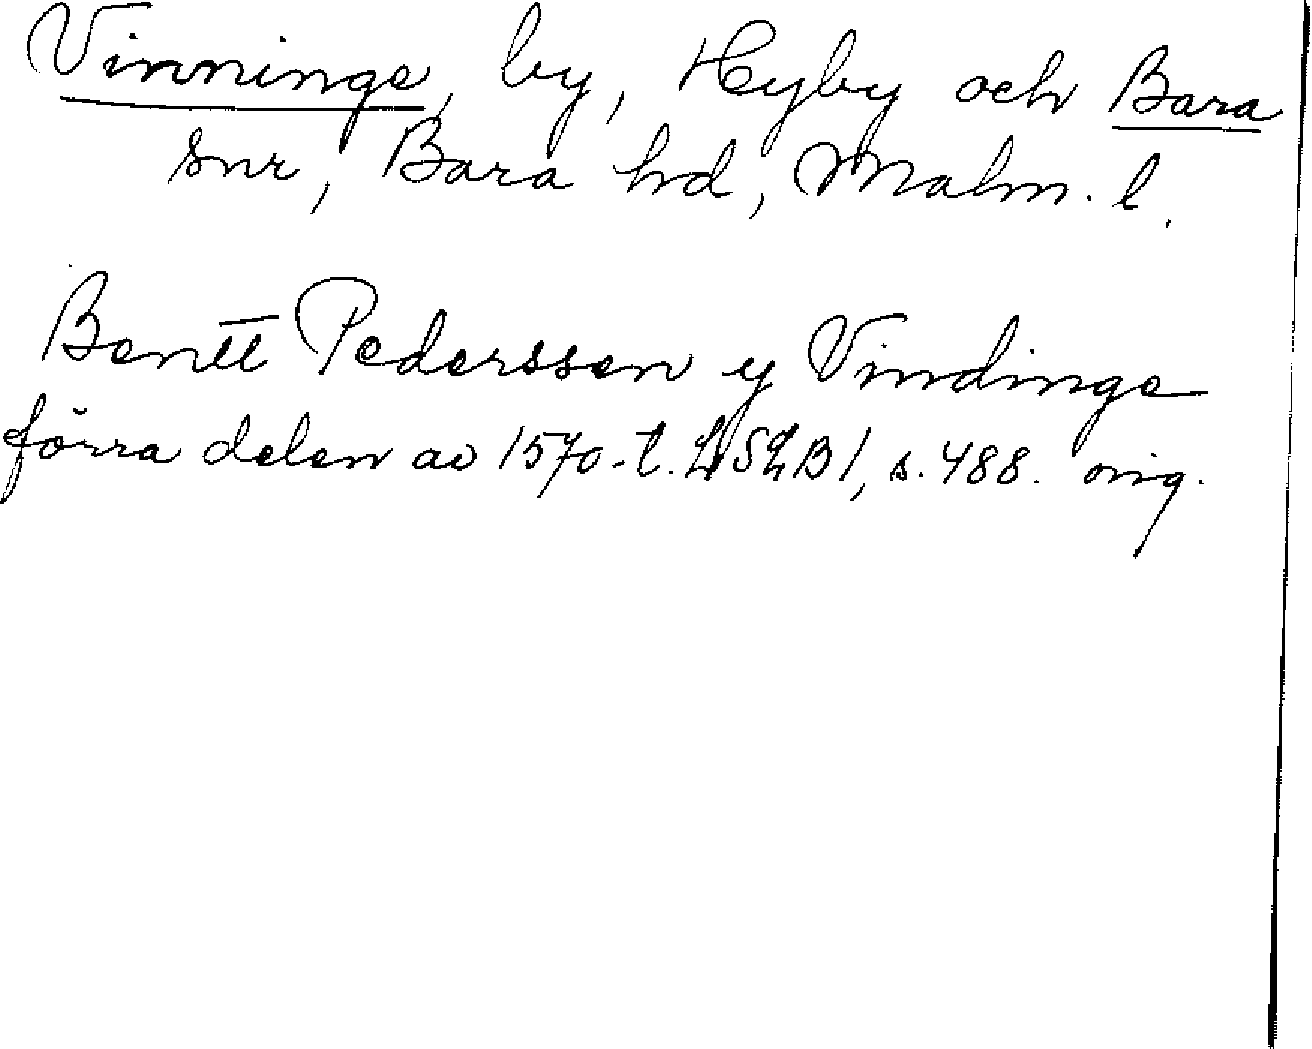 Vinninge, by, Hyby och Bara
snr, Bara hd, Malm. l.
Bentt Pederssen y Vindinge
förra delen av 1570-t. LSLB1, s. 488. orig.